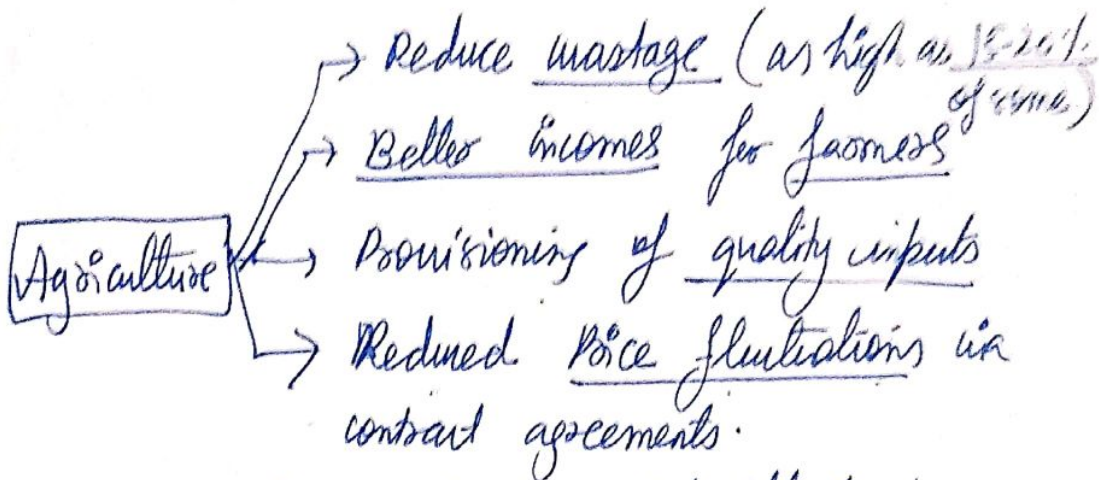 Reduce wastage (as high as 15-20%
of
Better incomes for farmers
Agriculture
Provisioning of quality inputs
Reduced Price fluctuations via
contract agreements.